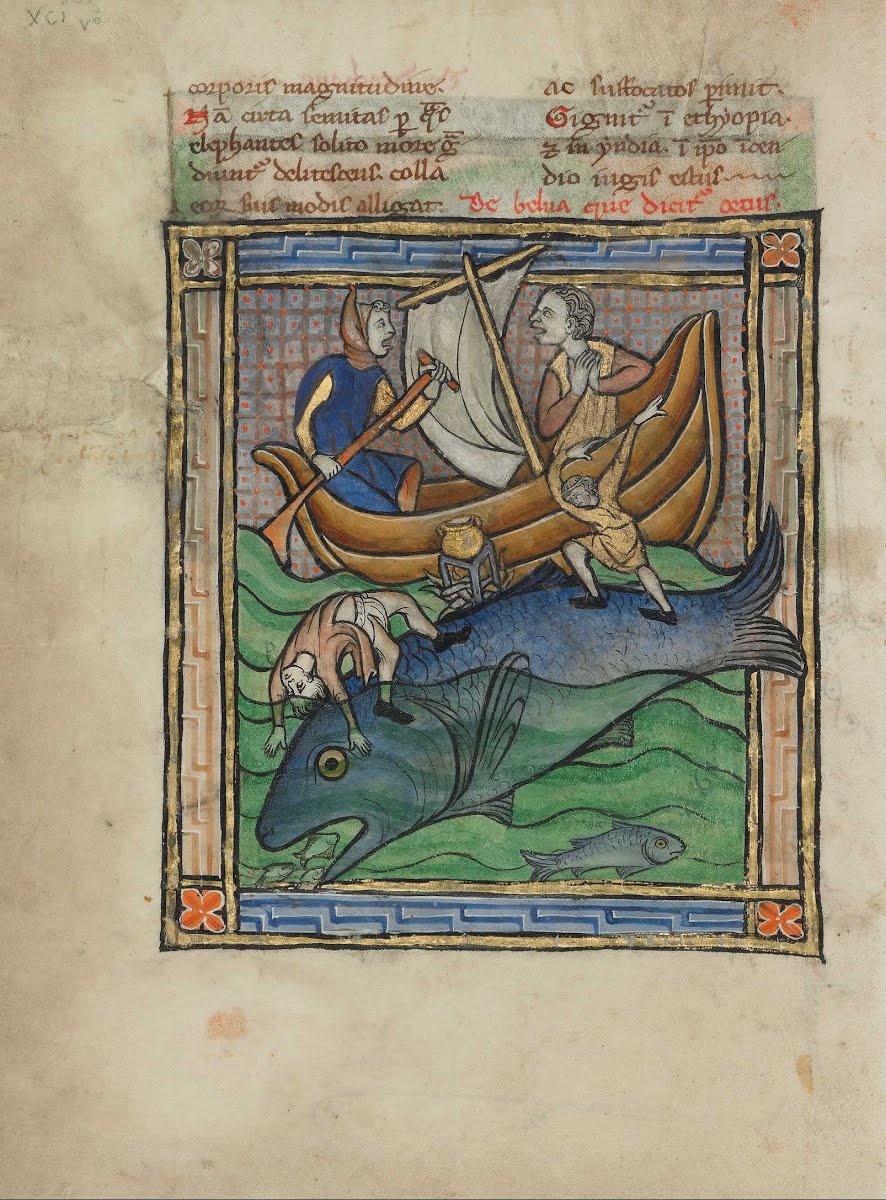 XCI vº
corporis magnitudine.
Nā circa semitas p q̄s
elephantes solito more g̃
diunt᷑ delitescens. colla
eor suis nodis alligat.
ac suffocatos pimit.
Gignit᷑ ī ethyopia.
⁊ in yndia. ī ipo icen
dio iugis estus
De belua que dicit᷑ cetus.